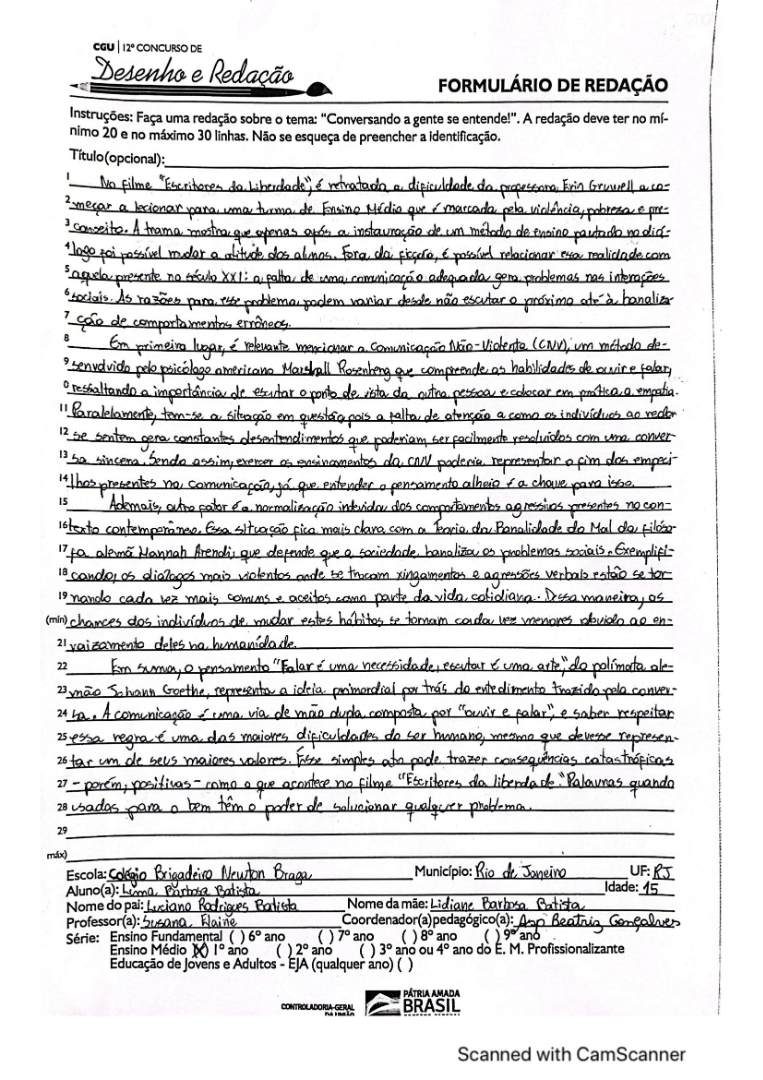 CGU | 12º CONCURSO DE
Desenho e Redação
FORMULÁRIO DE REDAÇÃO
Instruções: Faça uma redação sobre o tema: "Conversando a gente se entende!". A redação deve ter no mí-
nimo 20 e no máximo 30 linhas. Não se esqueça de preencher a Identificação.
Título(opcional):
1 No filme "Escritores da Liberdade", é retratada a dificuldade da professora Erin Gruwell a co-
2 meçar a lecionar para uma turma de Ensino Médio que é marcada pela violência, pobreza e pre-
3 conceito. A trama mostra que apenas após a instauração de um método de ensino pautado no diá-
4 logo foi possível mudar a atitude dos alunos. Fora da ficção, é possível relacionar essa realidade com
5 aquela presente no século XXI: a falta de uma comunicação adequada gera problemas nas interações
6 sociais. As razões para esse problema podem variar desde não escutar o próximo até à banaliza-
7 ção de comportamentos errôneos.
8 Em primeiro lugar, é relevante mencionar a Comunicação Não-Violenta (CNV), um método de-
9 senvolvido pelo psicólogo americano Marshall Rosenberg que compreende as habilidades de ouvir e falar,
0 ressaltando a importância de escutar o ponto de vista da outra pessoa e colocar em prática a empatia.
11 Paralelamente, tem-se a situação em questão pois a falta de atenção a como os indivíduos ao redor
12 se sentem gera constantes desentendimentos que poderiam ser facilmente resolvidos com uma conver-
13 sa sincera. Sendo assim, exercer os ensinamentos da CNV poderia representar o fim dos empeci-
14 lhos presentes na comunicação, já que entender o pensamento alheio é a chave para isso.
15 Ademais, outro fator é a normalização indevida dos comportamentos agressivos presentes no con-
16 texto contemporâneo. Essa situação fica mais clara com a Teoria da Banalidade do Mal da filóso-
17 fa alemã Hannah Arendt, que defende que a sociedade banaliza os problemas sociais. Exemplifi-
18 cando, os diálogos mais violentos onde se trocam xingamentos e agressões verbais estão se tor
19 nando cada vez mais comuns e aceitos como parte da vida cotidiana. Dessa maneira, as
(mín) chances dos indivíduos de mudar estes hábitos se tornam cada vez menores obvido ao en-
21 vaizamento deles na humanidade.
22 Em suma, o pensamento "Falar é uma necessidade, escutar é uma arte", do polímata ale-
23 mão Johann Goethe, representa a ideia primordial por trás do entedimento trazido pela conver-
24 sa. A comunicação é uma via de mão dupla composta por "ouvir e falar", e saber respeitar
25 essa regra é uma das maiores dificuldades do ser humano, mesmo que devesse represen-
26 tar um de seus maiores valores. Esse simples ato pode trazer consequências catastróficas
27 - porém, positivas - como o que acontece no filme "Escritores da liberdade". Palavras quando
28 usadas para o bem têm o poder de solucionar qualquer problema.
29
máx)
Escola: Colégio Brigadeiro Newton Braga Município: Rio de Janeiro UF: RJ
Aluno(a): Luma Barbosa Batista Idade: 15
Nome do pai: Luciano Rodrigues Batista Nome da mãe: Lidiane Barbosa Batista
Professor(a): Susana Elaine Coordenador(a)pedagógico(a): Beatriz Gonçalves
Série: Ensino Fundamental ( ) 6º ano ( ) 7º ano ( ) 8º ano ( ) 9º ano
Ensino Médio (X) 1º ano ( ) 2º ano ( ) 3º ano ou 4º ano do E. M. Profissionalizante
Educação de Jovens e Adultos - EJA (qualquer ano) ( )
CONTROLADORIA-GERAL
DA UNIÃO
PÁTRIA AMADA
BRASIL
Scanned with CamScanner